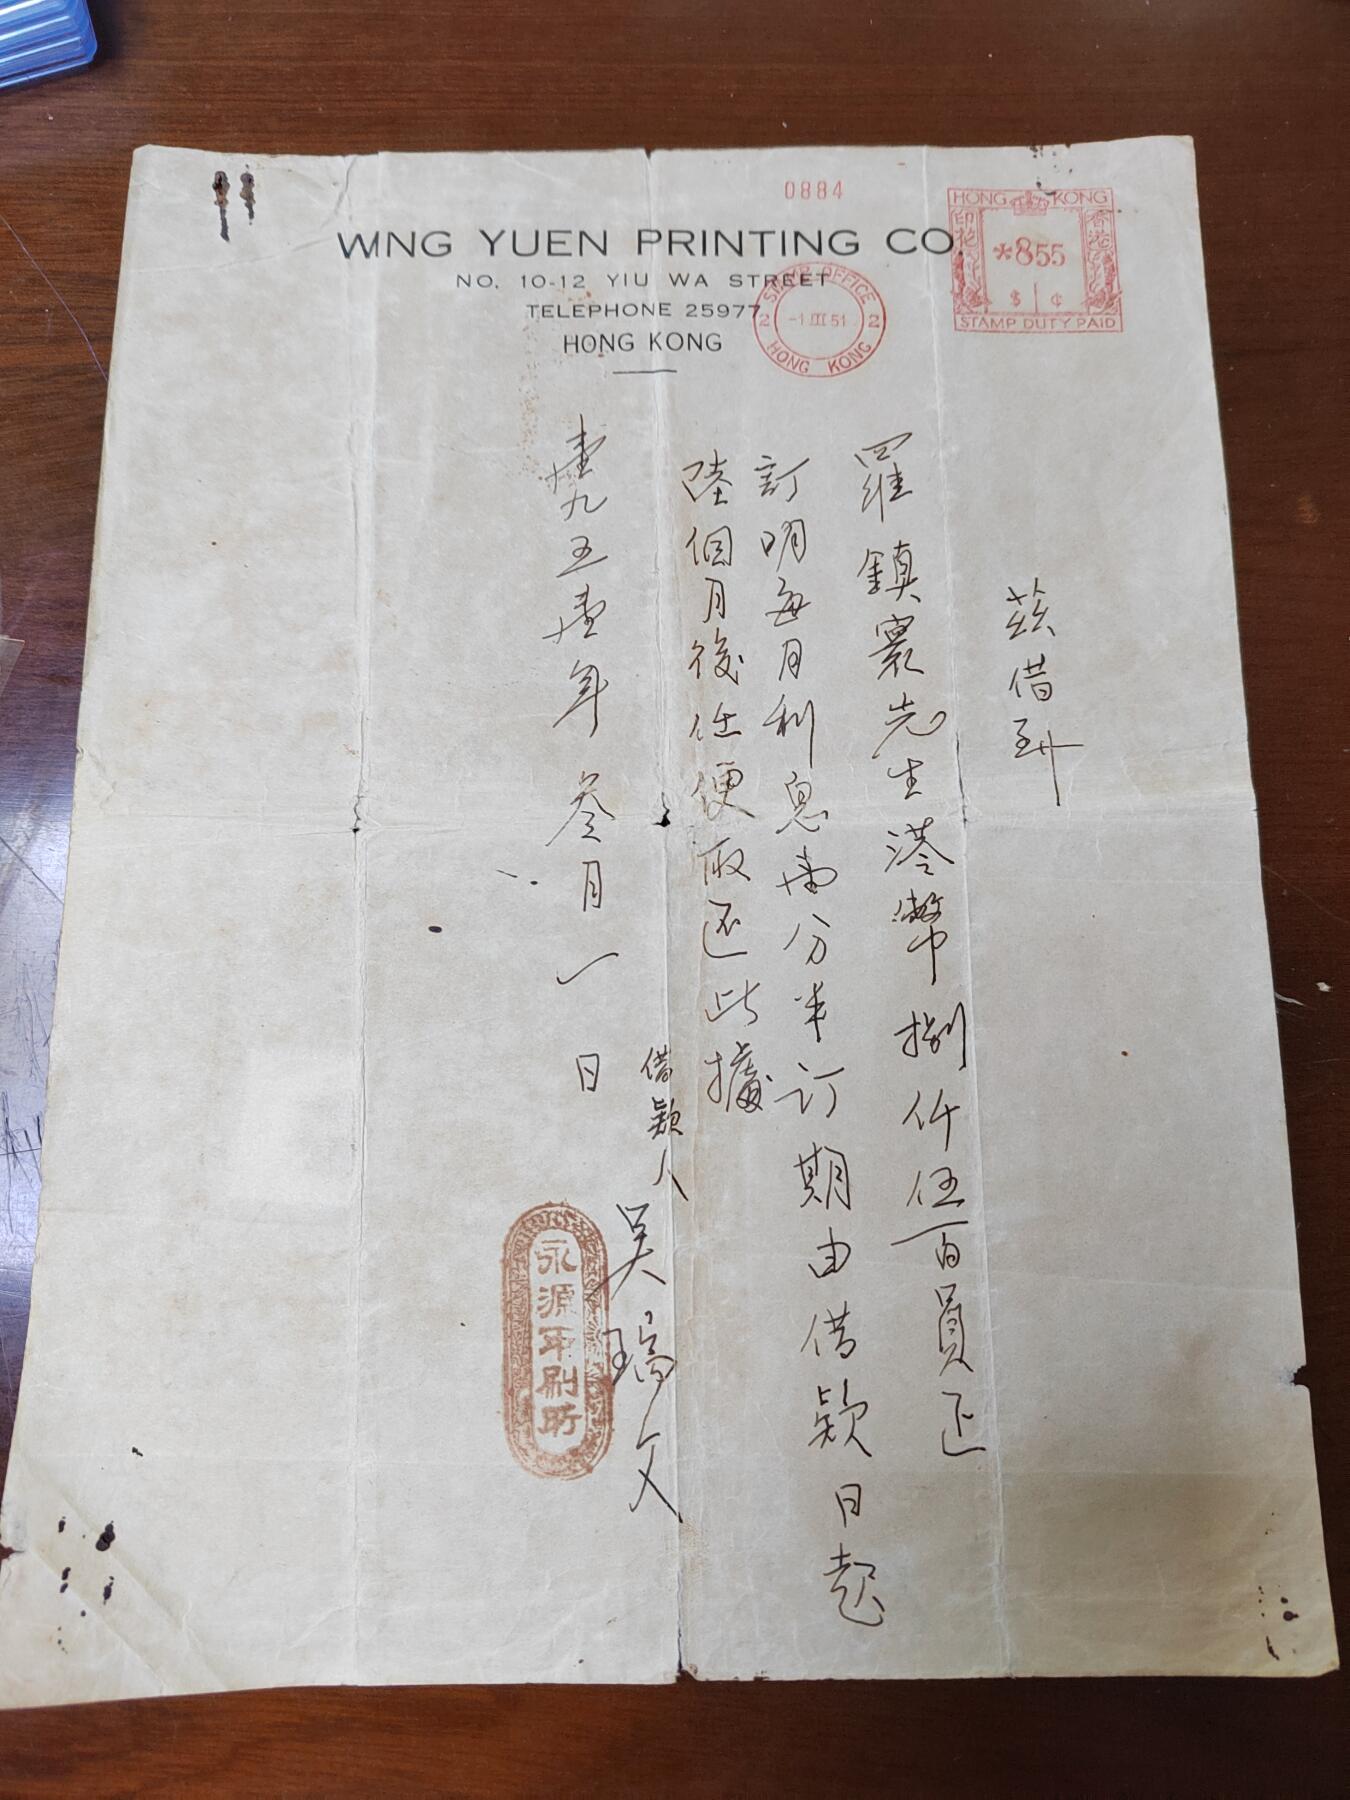 0884
WING YUEN PRINTING CO.
NO. 10-12 YIU WA STREET
TELEPHONE 25977
HONG KONG
HONG KONG
印花
香港
*855
$ ¢
STAMP DUTY PAID
STAMP OFFICE
2 -1 III 51 2
HONG KONG
茲借到
羅鎮寰先生港幣捌仟伍百員正
訂明每月利息壹分半訂期由借款日起
陸個月後任便取還此據
借款人 吳瑞文
壹九五壹年叁月一日
永源印刷所